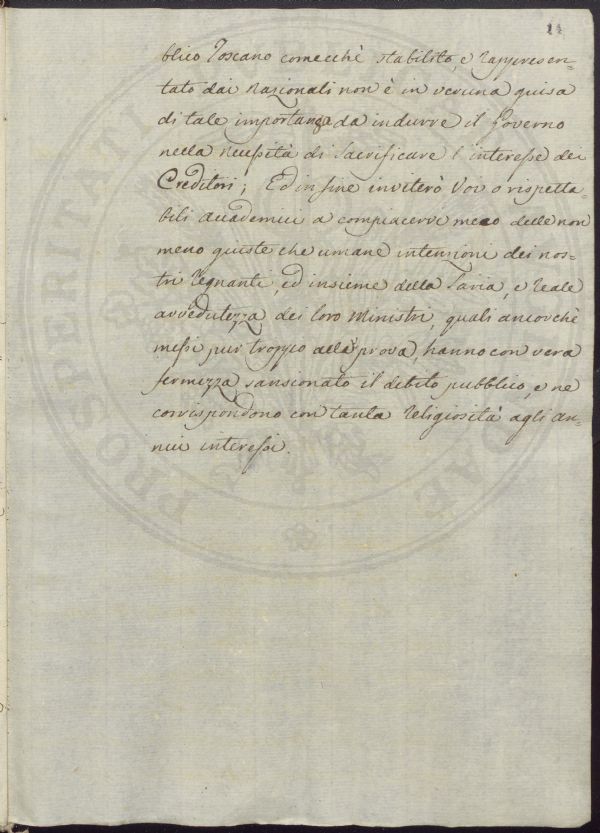 14
blico Toscano comecchè stabilito, e rappresen=
tato dai Nazionali non è in veruna guisa
di tale importanza da indurre il Governo
nella necessità di sacrificare l'interesse dei
Creditori; Ed in fine inviterò Voi o rispetta=
bili Accademici a compiacervi meco delle non
meno giuste che umane intenzioni dei nos=
tri Regnanti, ed insieme della savia, e reale
avvedutezza dei loro Ministri, quali ancorchè
messi pur troppo alla prova, hanno con vera
fermezza sansionato il debito pubblico, e ne
corrispondono con tanta religiosità agli an=
nui interessi.
PROSPERITATI
DAE